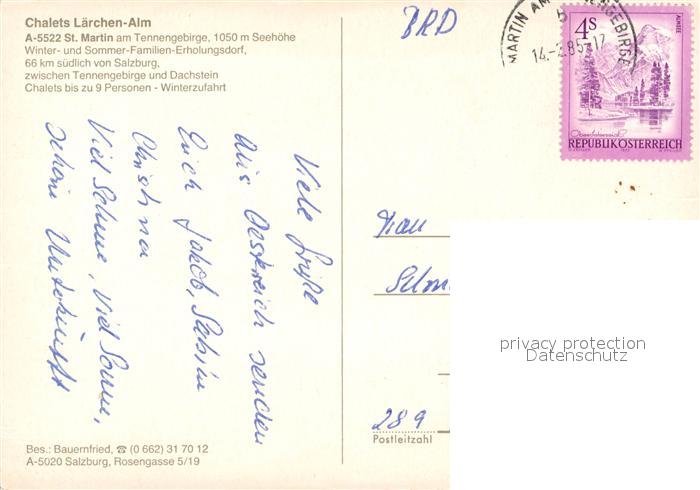 Chalets Lärchen-Alm
A-5522 St. Martin am Tennengebirge, 1050 m Seehöhe
Winter- und Sommer-Familien-Erholungsdorf,
66 km südlich von Salzburg,
zwischen Tennengebirge und Dachstein
Chalets bis zu 9 Personen - Winterzufahrt
BRD
MARTIN AM TENNENGEBIRGE
14.-2.85-17
b
4S
ALMSEE
Oberösterreich
REPUBLIK ÖSTERREICH
Viele Grüße
aus Oesterreich senden
Euch Jakob, Sabin
Christina
Viel Schnee, Viel Sonne,
schöne Unterkunft
Frau
289
Postleitzahl
privacy protection
Datenschutz
Bes.: Bauernfried, ☎ (0 662) 31 70 12
A-5020 Salzburg, Rosengasse 5/19